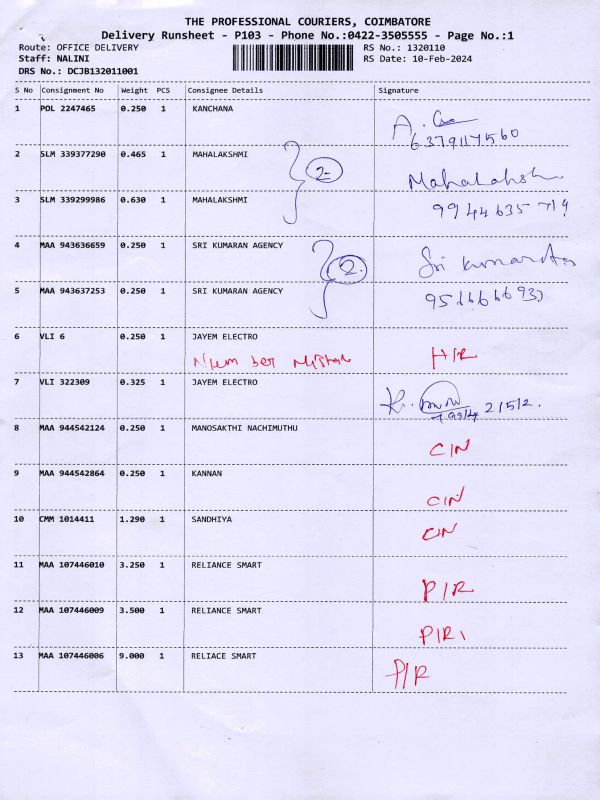 THE PROFESSIONAL COURIERS, COIMBATORE
Delivery Runsheet - P103 - Phone No.:0422-3505555 - Page No.:1
Route: OFFICE DELIVERY RS No.: 1320110
Staff: NALINI RS Date: 10-Feb-2024
DRS No.: DCJB132011001
S No Consignment No Weight PCS Consignee Details Signature
1 POL 2247465 0.250 1 KANCHANA
6379117560
2 SLM 339377290 0.465 1 MAHALAKSHMI 2 Mahalaksh
3 SLM 339299986 0.630 1 MAHALAKSHMI
9944635719
4 MAA 943636659 0.250 1 SRI KUMARAN AGENCY 2 Sri
5 MAA 943637253 0.250 1 SRI KUMARAN AGENCY
6 VLI 6 0.250 1 JAYEM ELECTRO
Num ber Mistak H/R
7 VLI 322309 0.325 1 JAYEM ELECTRO
K. 2/5/2.
8 MAA 944542124 0.250 1 MANOSAKTHI NACHIMUTHU
C/N
9 MAA 944542864 0.250 1 KANNAN
C/N
10 CMM 1014411 1.290 1 SANDHIYA
C/N
11 MAA 107446010 3.250 1 RELIANCE SMART
P/R
12 MAA 107446009 3.500 1 RELIANCE SMART
P/R
13 MAA 107446006 9.000 1 RELIACE SMART
P/R